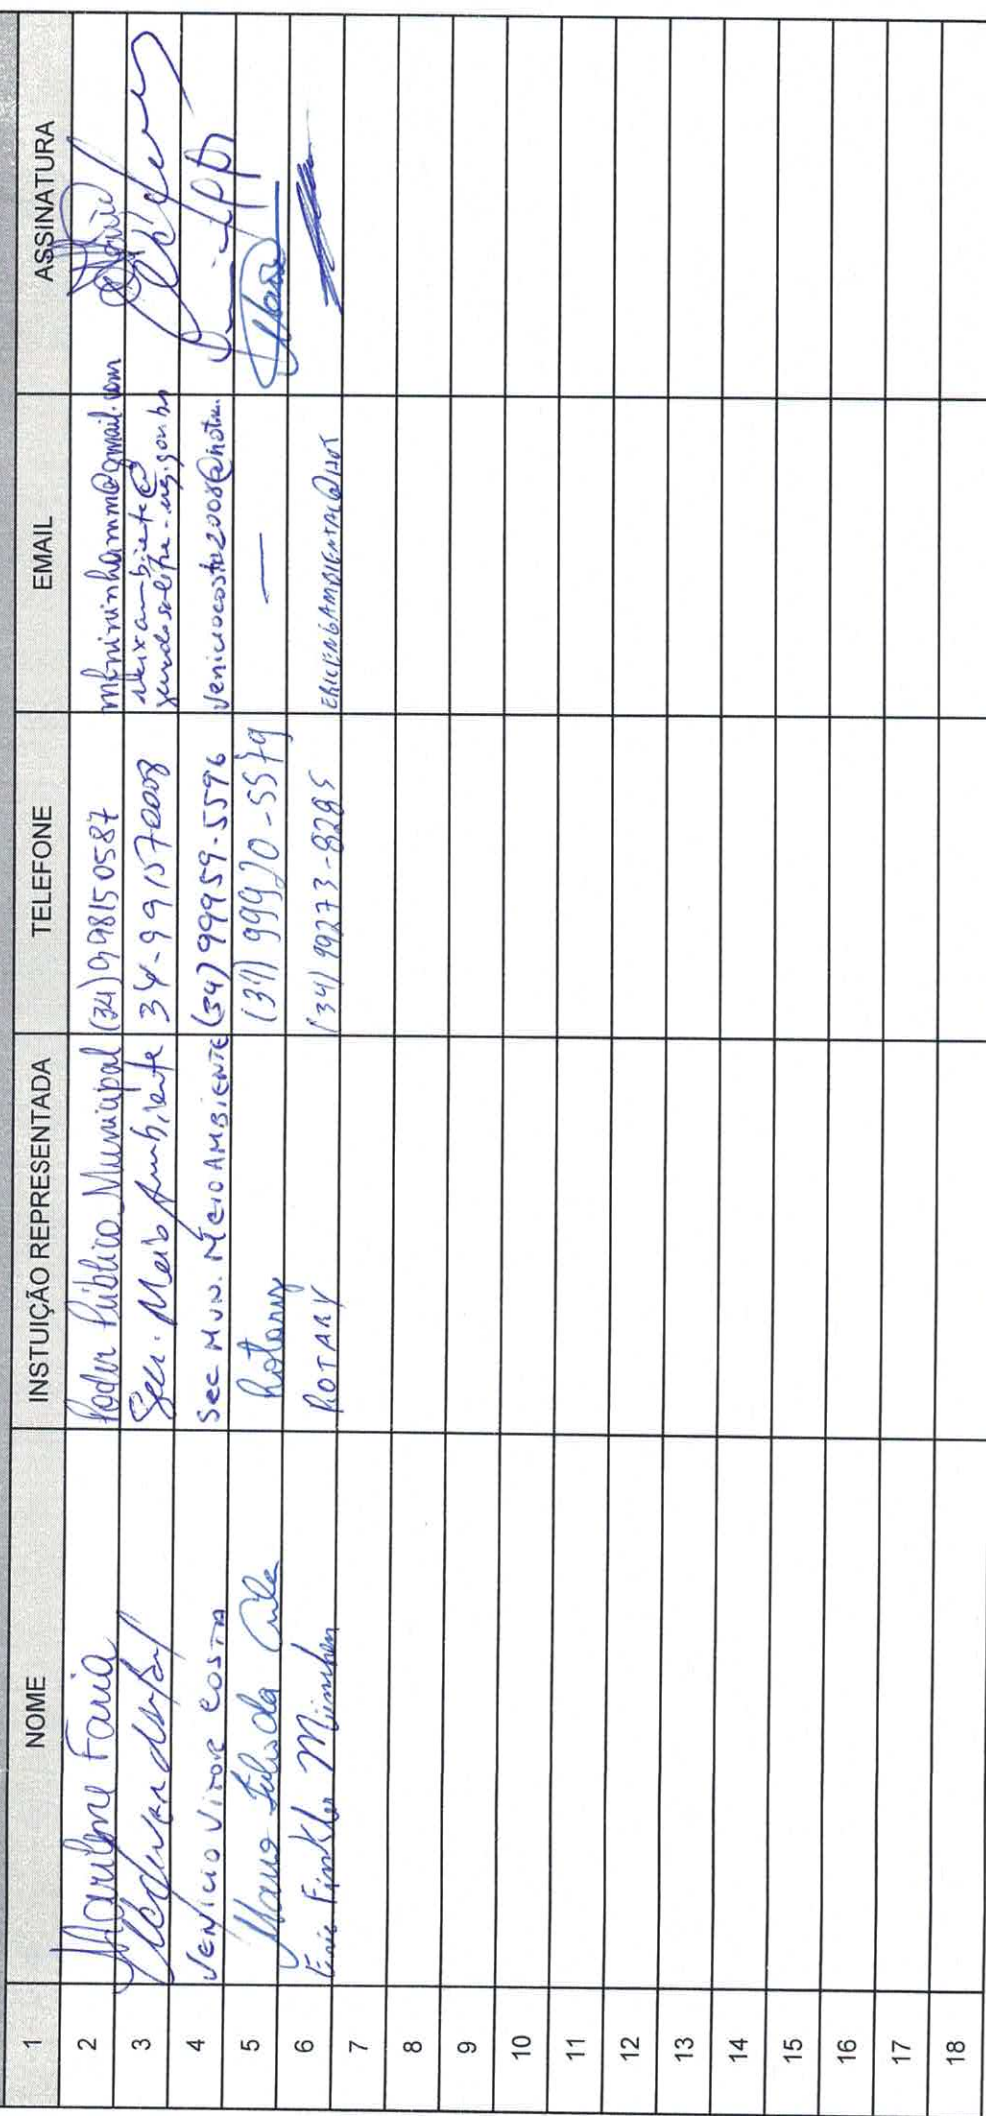 1 NOME INSTUIÇÃO REPRESENTADA TELEFONE EMAIL ASSINATURA
2 Marilene Faria Poder Público Municipal (34) 998150587 mfnininhamm@gmail.com
3 Secr. Meio Ambiente 34-991570008
4 VENICIO VITOR COSTA Sec MUN. MEIO AMBIENTE (34) 99959-5596 Veniciocosta2008@hotm.
5 Rotary (34) 99920-5579 —
6 Eric Finkler München ROTARY (34) 99273-8285 ERICENGAMBIENTAL@HOT
7
8
9
10
11
12
13
14
15
16
17
18